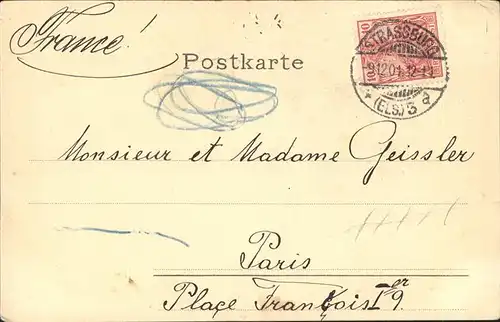 France!
Postkarte
10
STRASSBURG
9.12.01. 12-1
(ELS.) 3 a
Monsieur et Madame Geissler
Paris
Place François Ier 9.